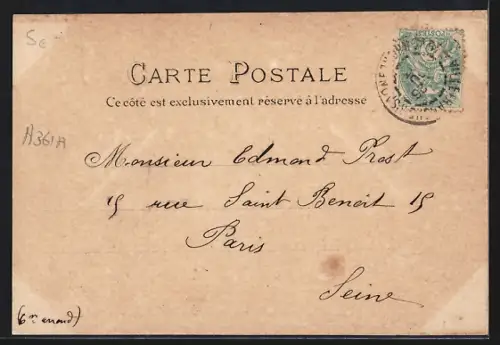 5€
CARTE POSTALE
Ce côté est exclusivement réservé à l'adresse
A361A
Monsieur Edmond Prost
15 rue Saint Benoît 15
Paris
Seine
(6me arrond)